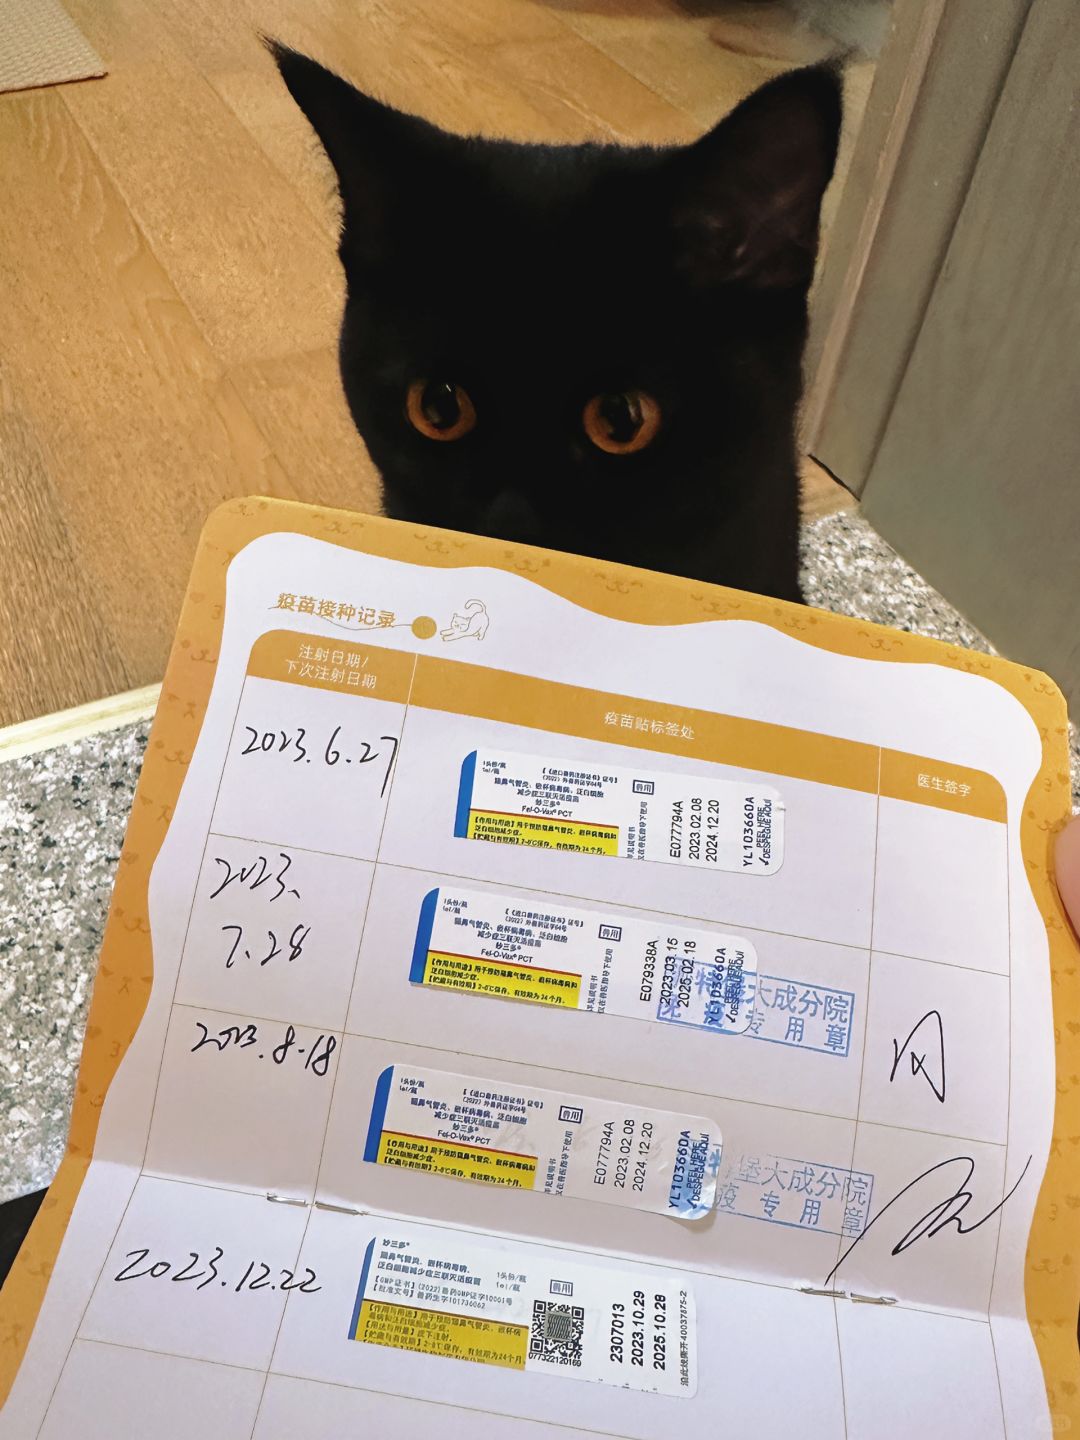 疫苗接种记录
注射日期/
下次注射日期
疫苗贴标签处
医生签字
2023.6.27
1头份/瓶
1ml/瓶
【《进口兽药注册证书》证号】
(2022)外兽药证字64号
猫鼻气管炎、嵌杯病毒病、泛白细胞
减少症三联灭活疫苗
妙三多®
Fel-O-Vax® PCT
【作用与用途】用于预防猫鼻气管炎、嵌杯病毒病和
泛白细胞减少症。
【贮藏与有效期】2~8℃保存，有效期为24个月。
兽用
详见说明书
仅在兽医指导下使用
E077794A
2023.02.08
2024.12.20
YL103660A
PEEL HERE
DESPEGUE AQUI
2023.
7.28
1头份/瓶
1ml/瓶
【《进口兽药注册证书》证号】
(2022)外兽药证字64号
猫鼻气管炎、嵌杯病毒病、泛白细胞
减少症三联灭活疫苗
妙三多®
Fel-O-Vax® PCT
【作用与用途】用于预防猫鼻气管炎、嵌杯病毒病和
泛白细胞减少症。
【贮藏与有效期】2~8℃保存，有效期为24个月。
兽用
详见说明书
仅在兽医指导下使用
E079338A
2023.03.15
2025.02.18
YL103660A
PEEL HERE
DESPEGUE AQUI
大成分院
专用章
2023.8.18
1头份/瓶
1ml/瓶
【《进口兽药注册证书》证号】
(2022)外兽药证字64号
猫鼻气管炎、嵌杯病毒病、泛白细胞
减少症三联灭活疫苗
妙三多®
Fel-O-Vax® PCT
【作用与用途】用于预防猫鼻气管炎、嵌杯病毒病和
泛白细胞减少症。
【贮藏与有效期】2~8℃保存，有效期为24个月。
兽用
详见说明书
仅在兽医指导下使用
E077794A
2023.02.08
2024.12.20
YL103660A
PEEL HERE
DESPEGUE AQUI
堡大成分院
疫专用章
2023.12.22
妙三多®
猫鼻气管炎、嵌杯病毒病、
泛白细胞减少症三联灭活疫苗
1头份/瓶
1ml/瓶
【GMP证书】(2022)兽药GMP证字10001号
【批准文号】兽药生字101736062
【作用与用途】用于预防猫鼻气管炎、嵌杯病
毒病和泛白细胞减少症。
【用法与用量】皮下注射。
【贮藏与有效期】2~8℃保存，有效期为24个月。
兽用
077322120169
2307013
2023.10.29
2025.10.28
沿此线撕开40037875-2